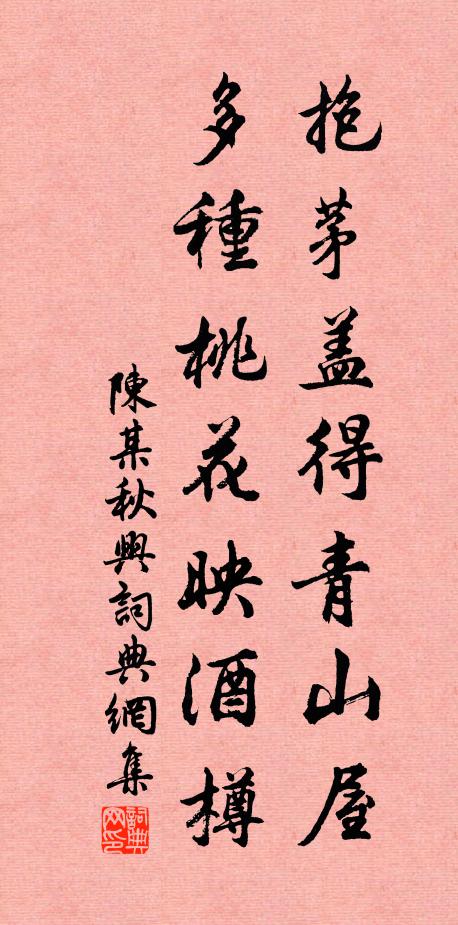 抱茅盖得青山屋
多種桃花映酒樽
陳某秋興詞典網集
詞典网印